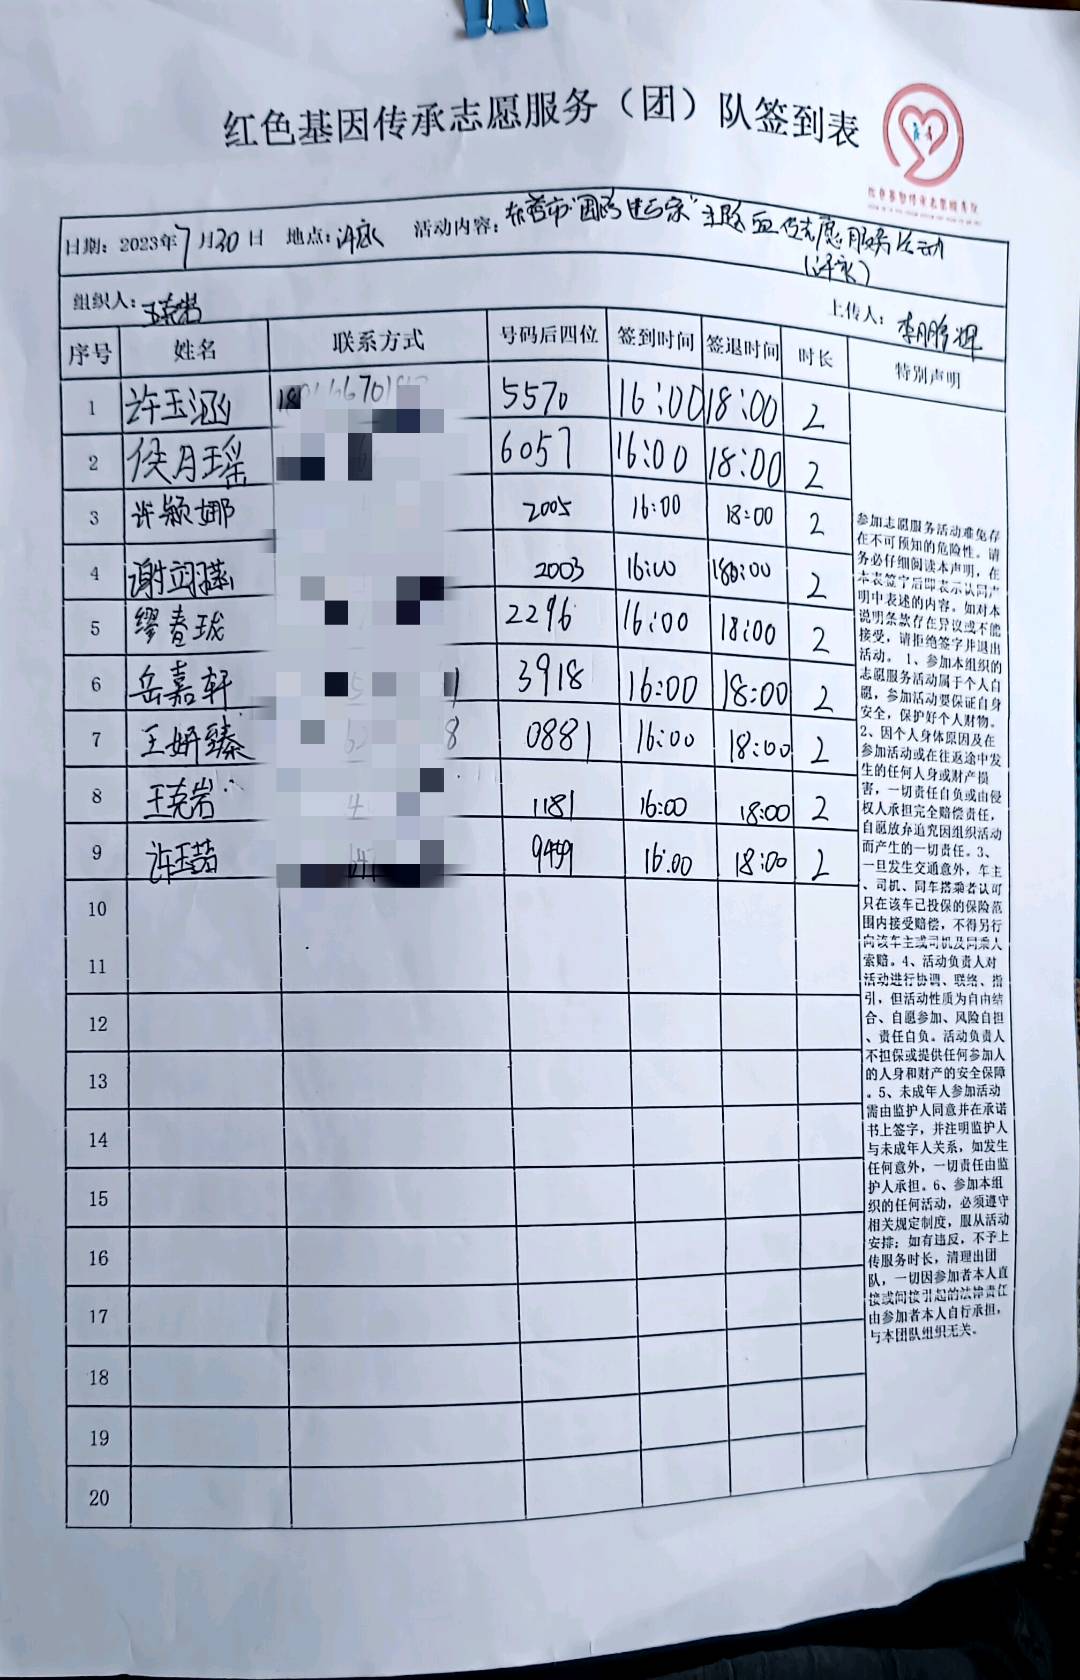 红色基因传承志愿服务（团）队签到表
日期：2023年7月30日 地点：许家 活动内容：东营市"国防进万家"主题宣传志愿服务活动
组织人：王克岩 上传人：李鹏辉
序号 姓名 联系方式 号码后四位 签到时间 签退时间 时长 特别声明
1 许玉涵 5570 16:00 18:00 2
2 侯月瑶 6057 16:00 18:00 2
3 许颖娜 2005 16:00 18:00 2
4 2003 16:00 2
5 缪春珑 2296 16:00 18:00 2
6 岳嘉轩 3918 16:00 18:00 2
7 王妍臻 0881 16:00 18:00 2
8 王克岩 1181 16:00 18:00 2
9 许玉茹 16:00 18:00 2
10
11
12
13
14
15
16
17
18
19
20
参加志愿服务活动难免存
在不可预知的危险性。请
务必仔细阅读本声明，在
本表签字后即表示认同声
明中表述的内容。如对本
说明条款存在异议或不能
接受，请拒绝签字并退出
活动。1、参加本组织的
志愿服务活动属于个人自
愿，参加活动要保证自身
安全，保护好个人财物。
2、因个人身体原因及在
参加活动或在往返途中发
生的任何人身或财产损
害，一切责任自负或由侵
权人承担完全赔偿责任，
自愿放弃追究因组织活动
而产生的一切责任。3、
一旦发生交通意外，车主
、司机、同车搭乘者认可
只在该车已投保的保险范
围内接受赔偿，不得另行
向该车主或司机及同乘人
索赔。4、活动负责人对
活动进行协调、联络、指
引，但活动性质为自由结
合、自愿参加、风险自担
、责任自负。活动负责人
不担保或提供任何参加人
的人身和财产的安全保障
。5、未成年人参加活动
需由监护人同意并在承诺
书上签字，并注明监护人
与未成年人关系，如发生
任何意外，一切责任由监
护人承担。6、参加本组
织的任何活动，必须遵守
相关规定制度，服从活动
安排；如有违反，不予上
传服务时长，清理出团
队，一切因参加者本人直
接或间接引起的法律责任
由参加者本人自行承担，
与本团队组织无关。